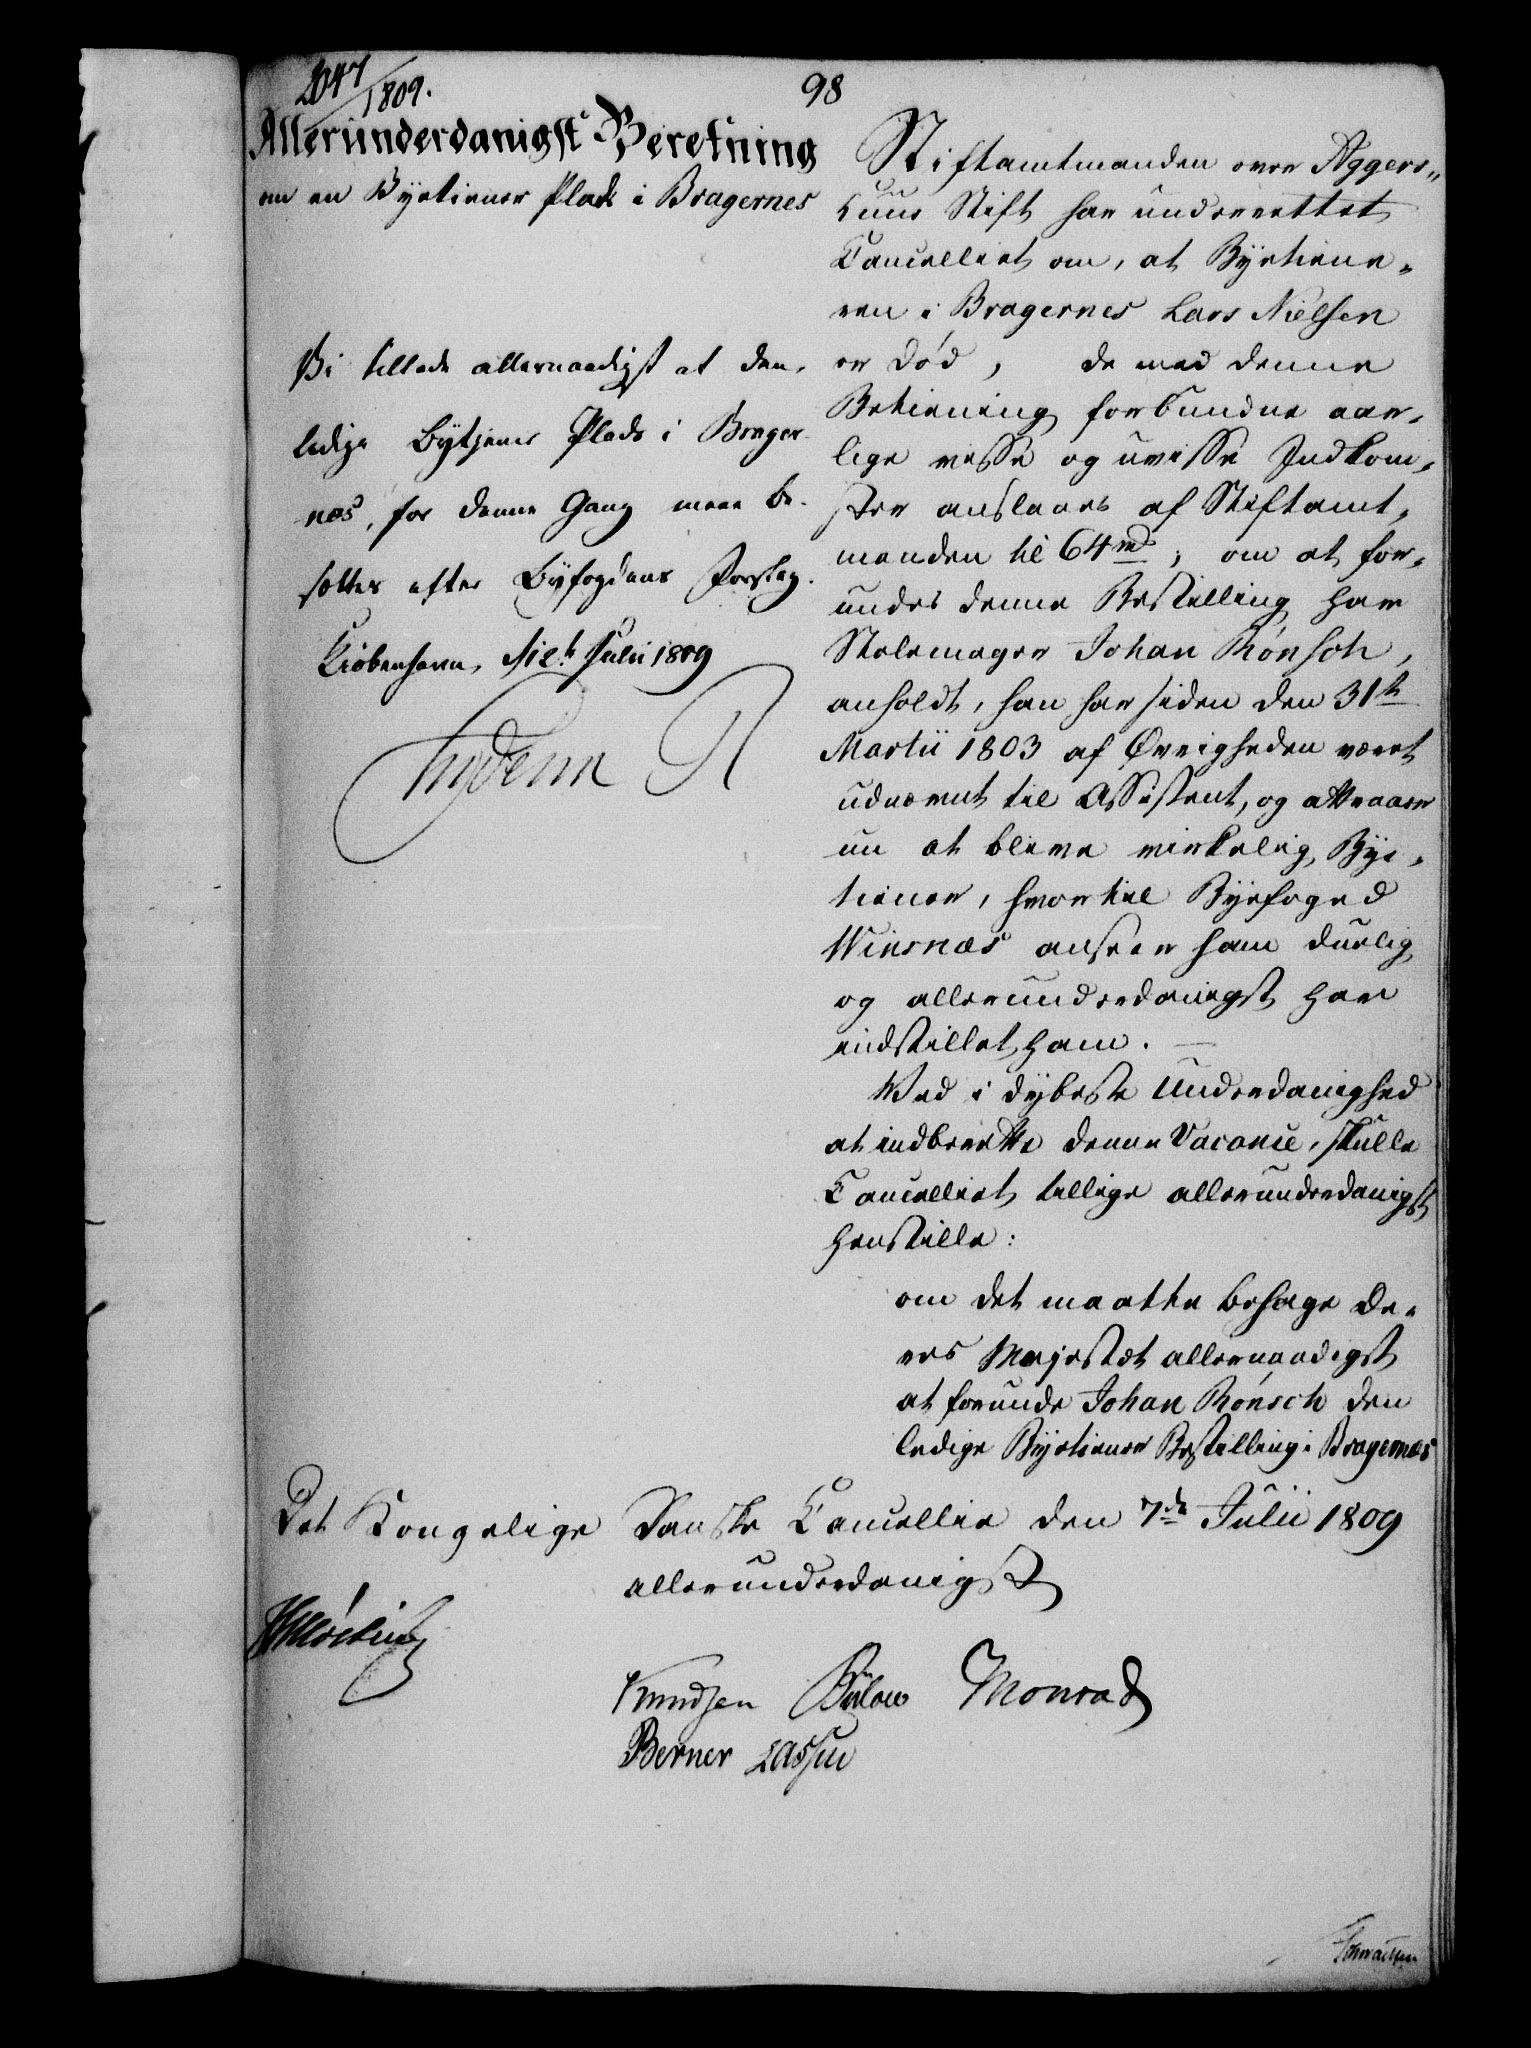 2047/1809.
98
Allerunderdanigst Beretning
om en Byetiener Plads i Bragernes
Vi tillade allernaadigst at den
ledige Bytjener Plads i Brager-
næs, for denne Gang maae be-
sættes efter Byfogdens Forslag.
Kiöbenhavn, d. 12t Julii 1809
Friderich R
Stiftamtmanden over Aggers-
huus Stift har underrettet
Cancelliet om, at Byetiene-
ren i Bragernes Lars Nielsen
er død, de med denne
Betiening forbundne aar-
lige visse og uvisse Indkom-
ster anslaaes af Stiftamt-
manden til 64 rd; om at for-
undes denne Bestilling har
Stolemager Johan Rönsch,
anholdt, han har siden den 31te
Martii 1803 af Øvrigheden været
udnævnt til Assistent, og attraaer
nu at blive virkelig Bye-
tiener, hvortil Byefoged
Winsnæs anseer ham duelig
og allerunderdanigst har
indstillet ham.
Ved i dybeste Underdanighed
at indberette denne Vacance, skulle
Cancelliet tillige allerunderdanigst
henstille:
om det maatte behage De-
res Majestæt allernaadigst
at forunde Johan Rönsch den
ledige Byetiener Bestilling i Bragernæs
Det Kongelige Danske Cancellie den 7de Julii 1809
allerunderdanigst
Knudsen Bülow Monrad
Berner Lassen